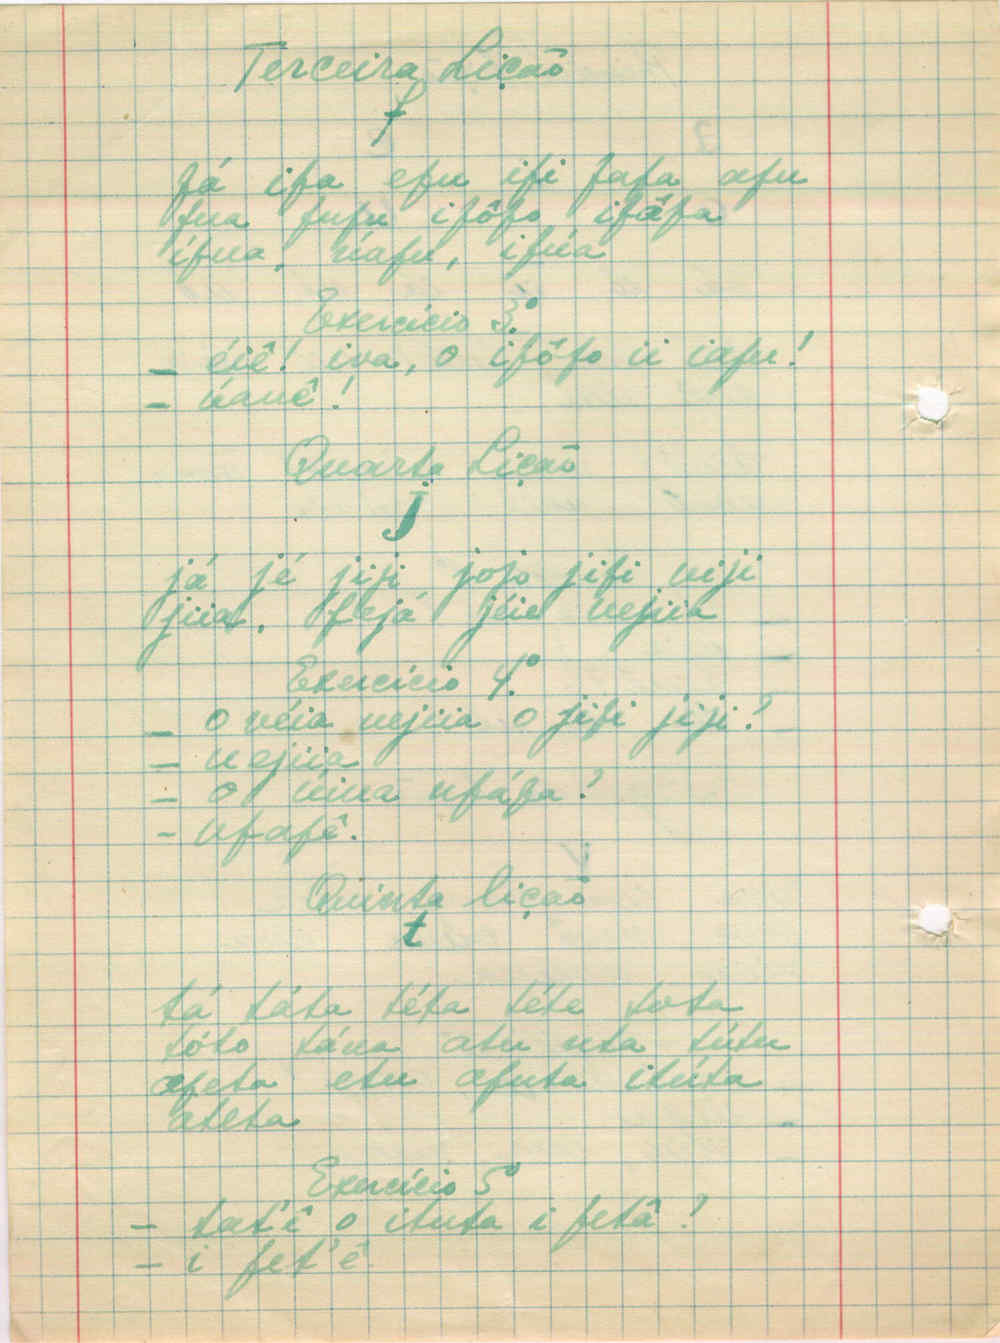 Terceira Lição
f
fá ifa efu ifi fafa afu
fua fufu ifôfo ifâfa
ífua, úafu, ifúa
Exercício 3º
– éiê! iva, o ifôfo ii iafu!
– úauê!
Quarta Lição
J
já jé jiji jojo jifi viji
jiia, fejá júie vejiia
Exercício 4º
– o véia vejiia o jifi jiji?
– vejiia
– o úiua ufáfa?
– ufafê.
Quinta lição
t
tá táta téta téte tota
tóto táua atu uta tútu
afeta etu afuta itúta
ateta
Exercício 5º
– tat'ê o ituta i fetâ?
– i fet'ê.